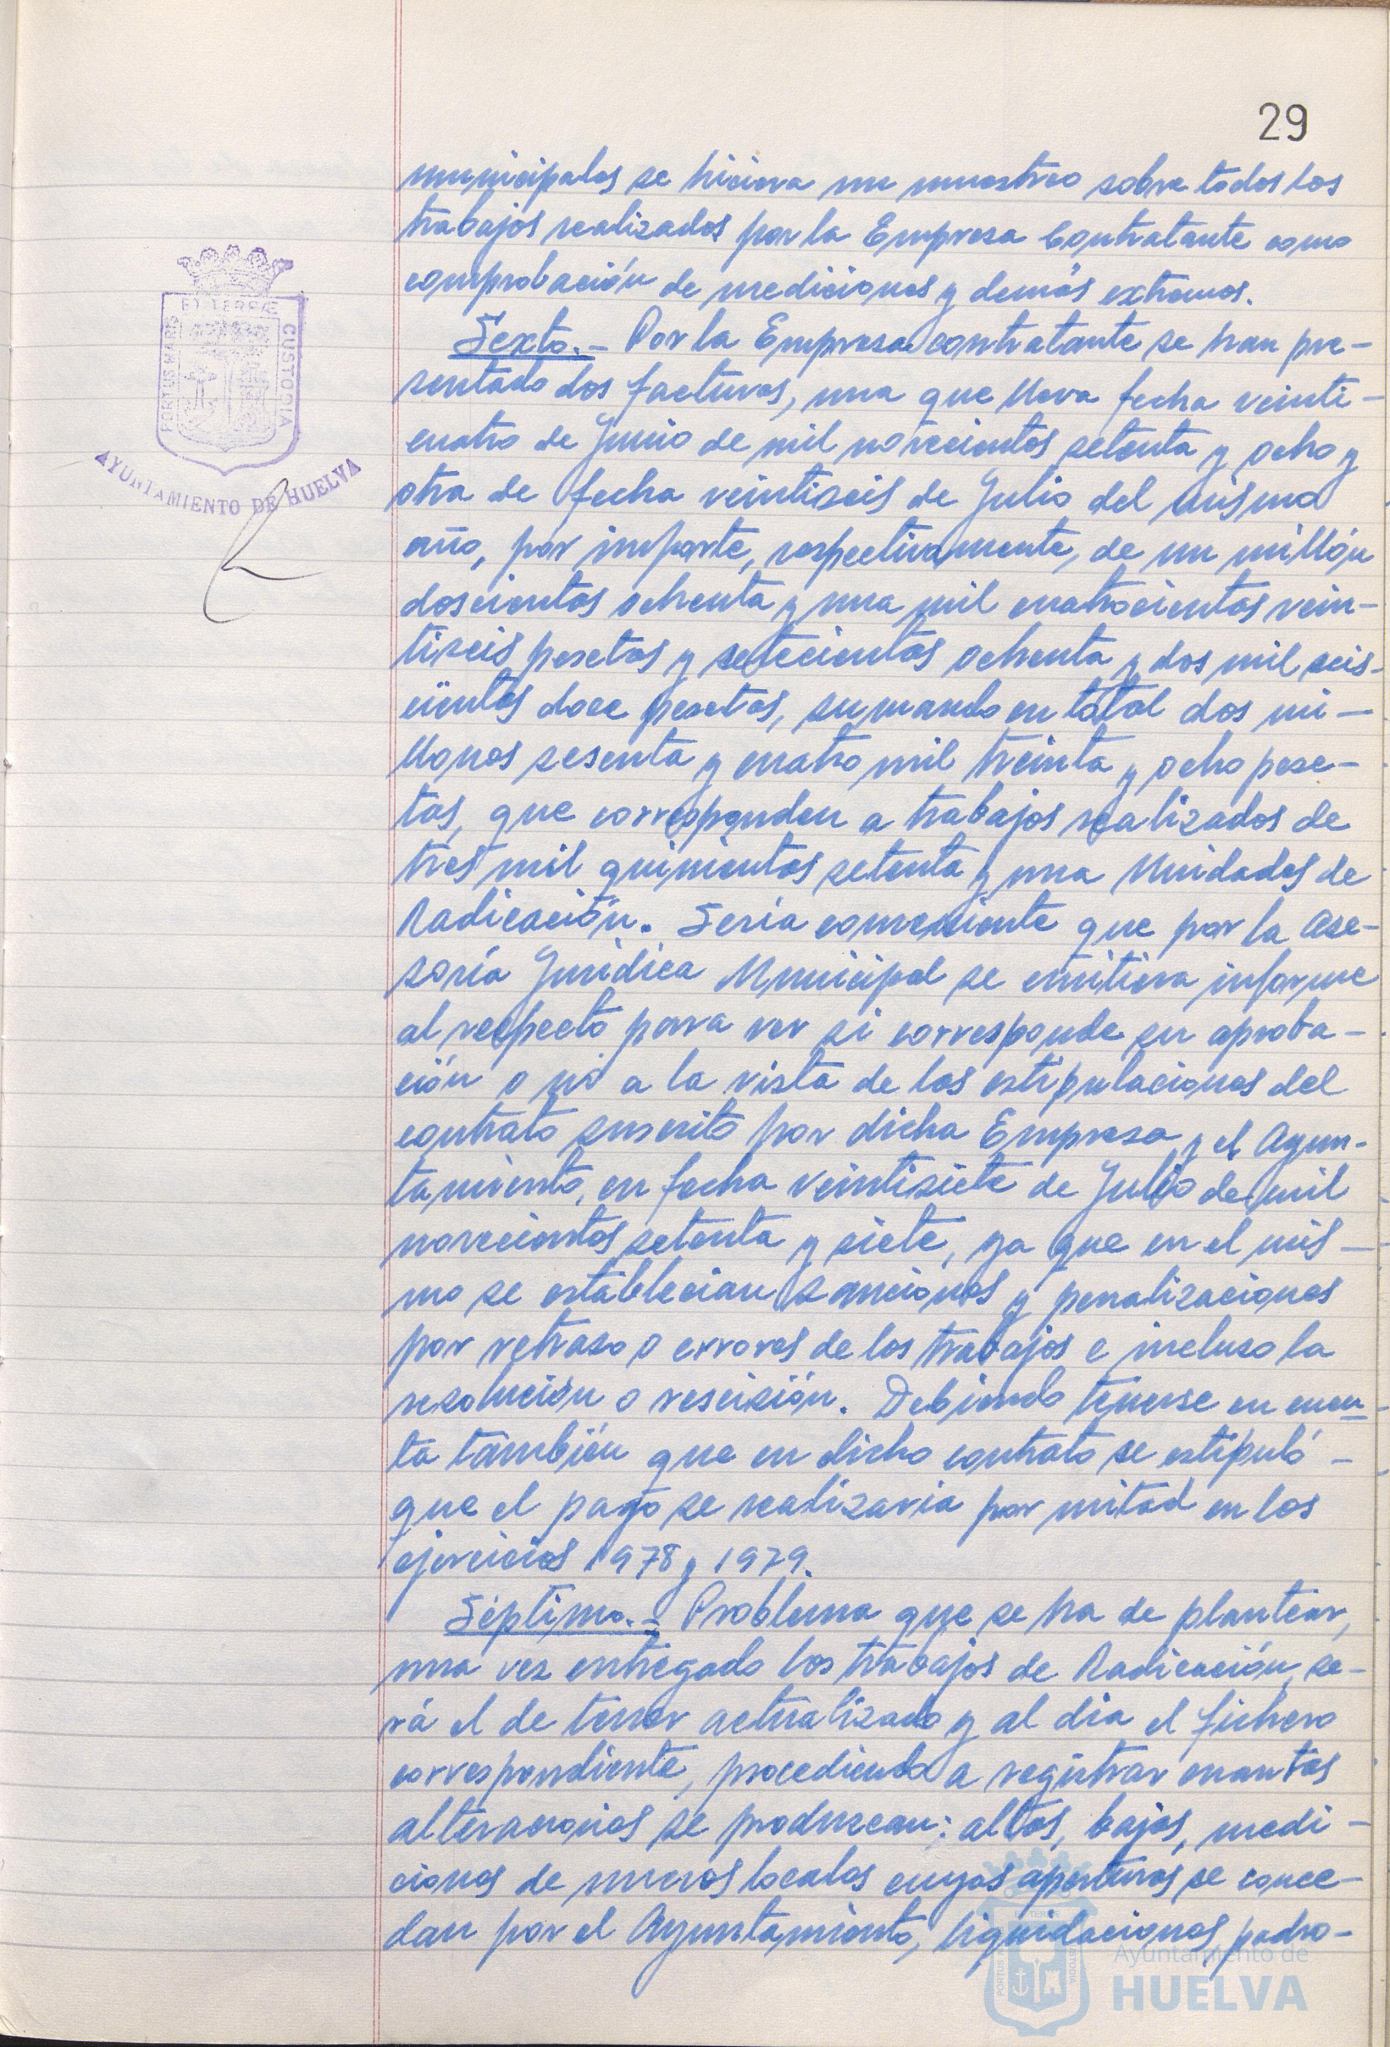 29
municipales se hiciera un muestreo sobre todos los
trabajos realizados por la Empresa Contratante como
comprobación de mediciones y demás extremos.
Sexto.- Por la Empresa contratante se han pre-
sentado dos facturas, una que lleva fecha veinti-
cuatro de Junio de mil novecientos setenta y ocho y
otra de fecha veintiseis de Julio del mismo
año, por importe, respectivamente, de un millón
doscientas ochenta y una mil cuatrocientas vein-
tiseis pesetas y setecientas ochenta y dos mil seis-
cientas doce pesetas, sumando en total dos mi-
llones sesenta y cuatro mil treinta y ocho pese-
tas, que corresponden a trabajos realizados de
tres mil quinientas setenta y una Unidades de
Radicación. Sería conveniente que por la Ase-
soría Jurídica Municipal se emitiera informe
al respecto para ver si corresponde su aproba-
ción o no a la vista de las estipulaciones del
contrato suscrito por dicha Empresa y el Ayun-
tamiento, en fecha veintisiete de Julio de mil
novecientos setenta y siete, ya que en el mis-
mo se establecian sanciones y penalizaciones
por retraso o errores de los trabajos e incluso la
resolución o rescisión. Debiendo tenerse en cuen-
ta también que en dicho contrato se estipuló -
que el pago se realizaria por mitad en los
ejercicios 1978 y 1979.
Séptimo.- Problema que se ha de plantear,
una vez entregado los trabajos de Radicación, se-
rá el de tener actualizado y al dia el fichero
correspondiente, procediendo a registrar cuantas
alteraciones se produzcan: altas, bajas, medi-
ciones de nuevos locales cuyas aperturas se conce-
dan por el Ayuntamiento, liquidaciones, padro-
PORTUS MARIS
ET TERRAE
CUSTODIA
AYUNTAMIENTO DE HUELVA
Ayuntamiento de
HUELVA